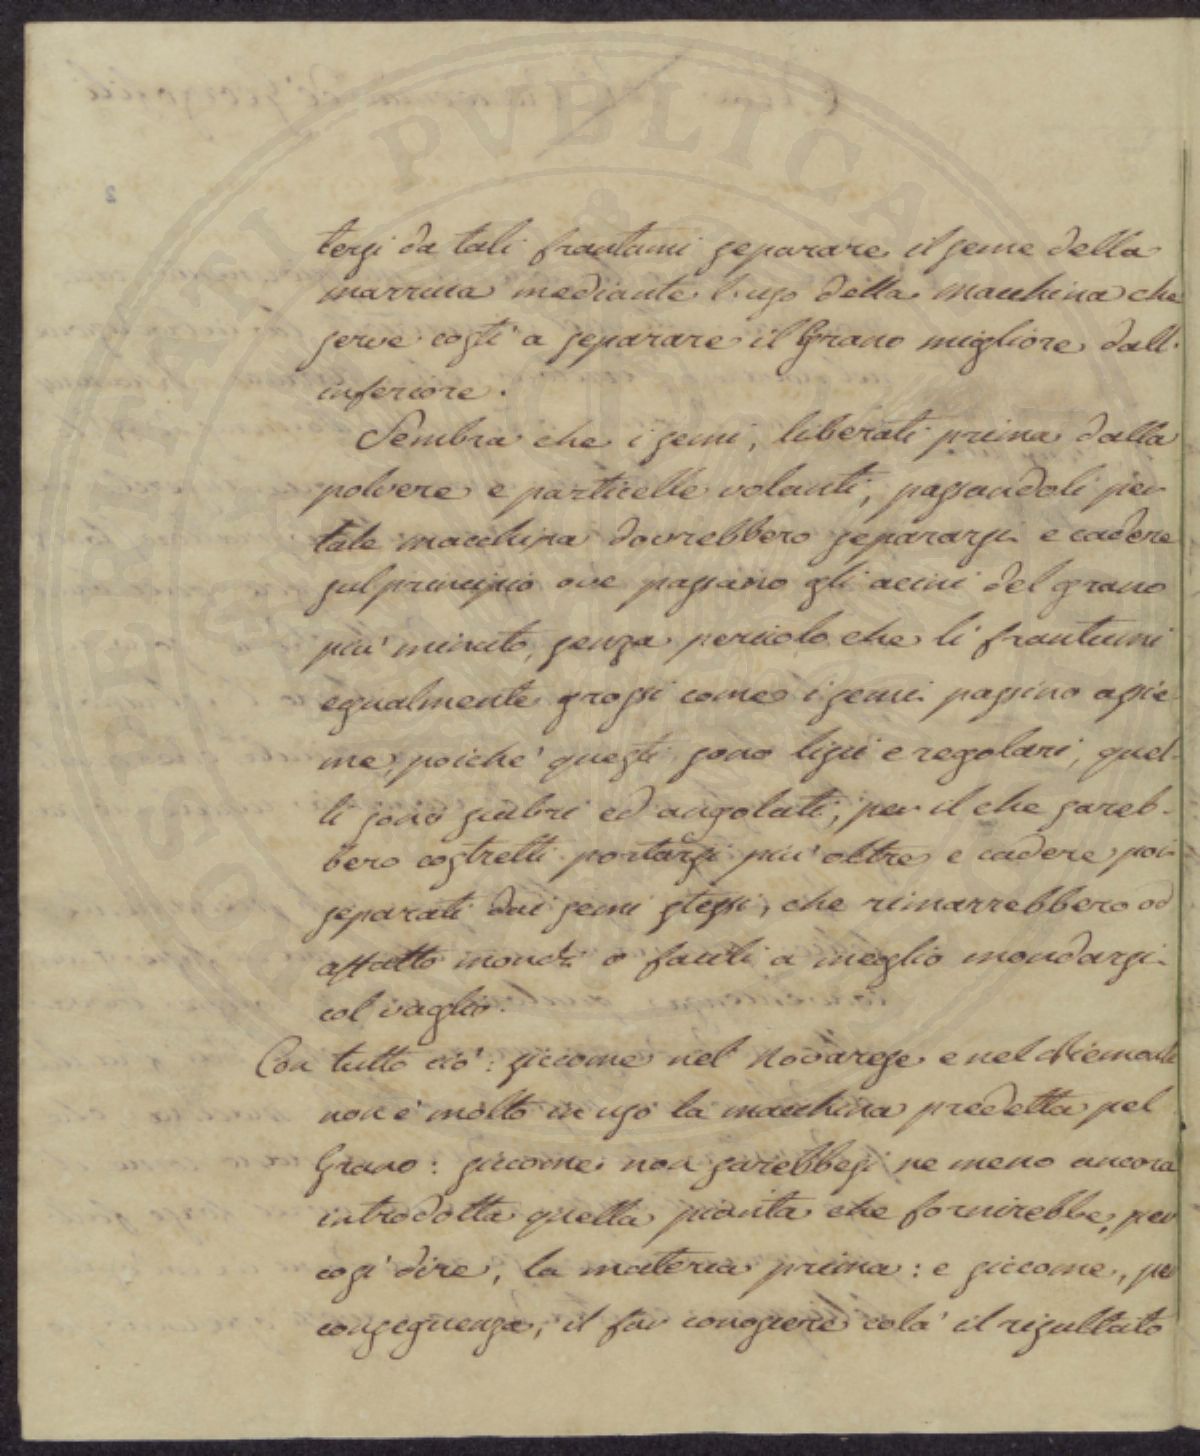 tersi da tali frantumi separare il seme della
marruca mediante l'uso della macchina che
serve costì a separare il Grano migliore dall'
inferiore.
Sembra che i semi, liberati prima dalla
polvere e particelle volanti, passandoli per
tale macchina dovrebbero separarsi e cadere
sul principio ove passano gli acini del grano
più minuto, senza pericolo che li frantumi
egualmente grossi come i semi passino assie-
me, poichè questi sono lisci e regolari, quel-
li sono scabri ed angolati, per il che sareb-
bero costretti portarsi più oltre e cadere poi
separati dai semi stessi, che rimarrebbero od
affatto mondi o facili a meglio mondarsi
col vaglio.
Con tutto ciò: siccome nel Novarese e nel Piemonte
non è molto in uso la macchina predetta pel
Grano: siccome non sarebbesi ne meno ancora
introdotta quella pianta che fornirebbe, per
così dire, la materia prima: e siccome, per
conseguenza, il far conoscere colà il risultato
PVBLICA
2